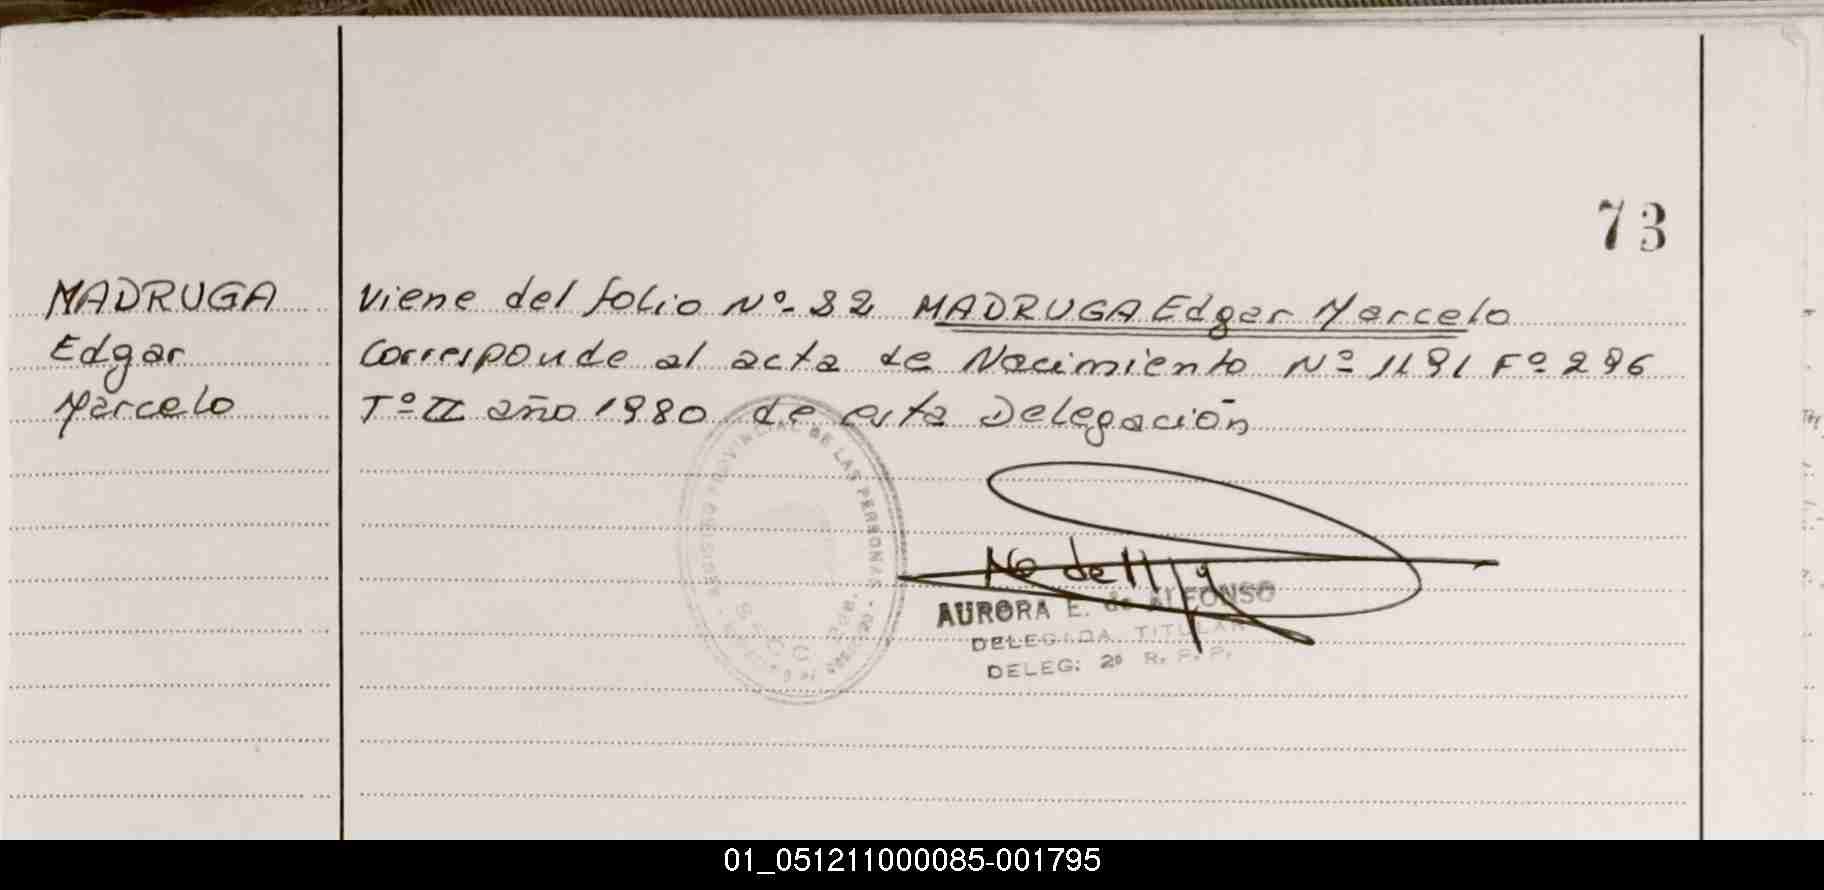 73
MADRUGA
Edgar
Marcelo
Viene del folio Nº 82 MADRUGA Edgar Marcelo
Corresponde al acta de Nacimiento Nº 1191 Fº 296
Tº II año 1980 de esta Delegación
REGISTRO PROVINCIAL DE LAS PERSONAS
AURORA E. de ALFONSO
DELEGADA TITULAR
DELEG: 2º R. P. P.
01_051211000085-001795